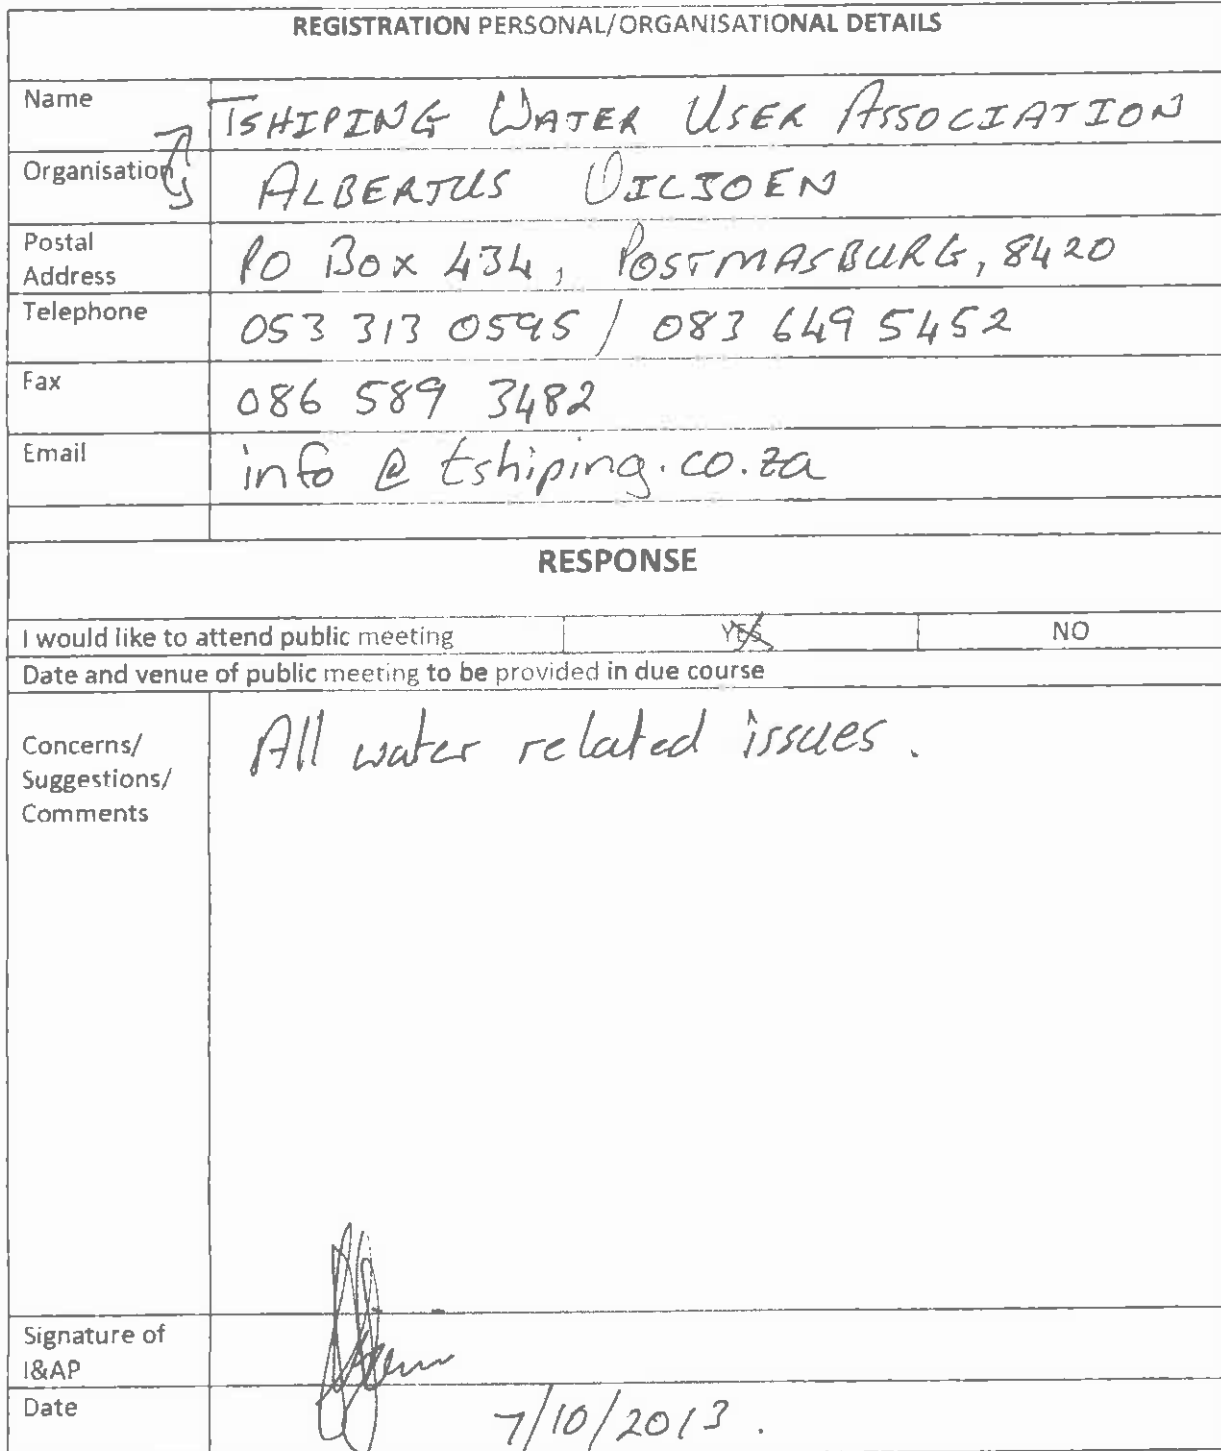 REGISTRATION PERSONAL/ORGANISATIONAL DETAILS
Name TSHIPING WATER USER ASSOCIATION
Organisation ALBERTUS VILJOEN
Postal
Address PO BOX 434, POSTMASBURG, 8420
Telephone 053 313 0595 / 083 649 5452
Fax 086 589 3482
Email info @ tshiping.co.za
RESPONSE
I would like to attend public meeting YES NO
Date and venue of public meeting to be provided in due course
Concerns/ All water related issues.
Suggestions/
Comments
Signature of
I&AP
Date 7/10/2013.